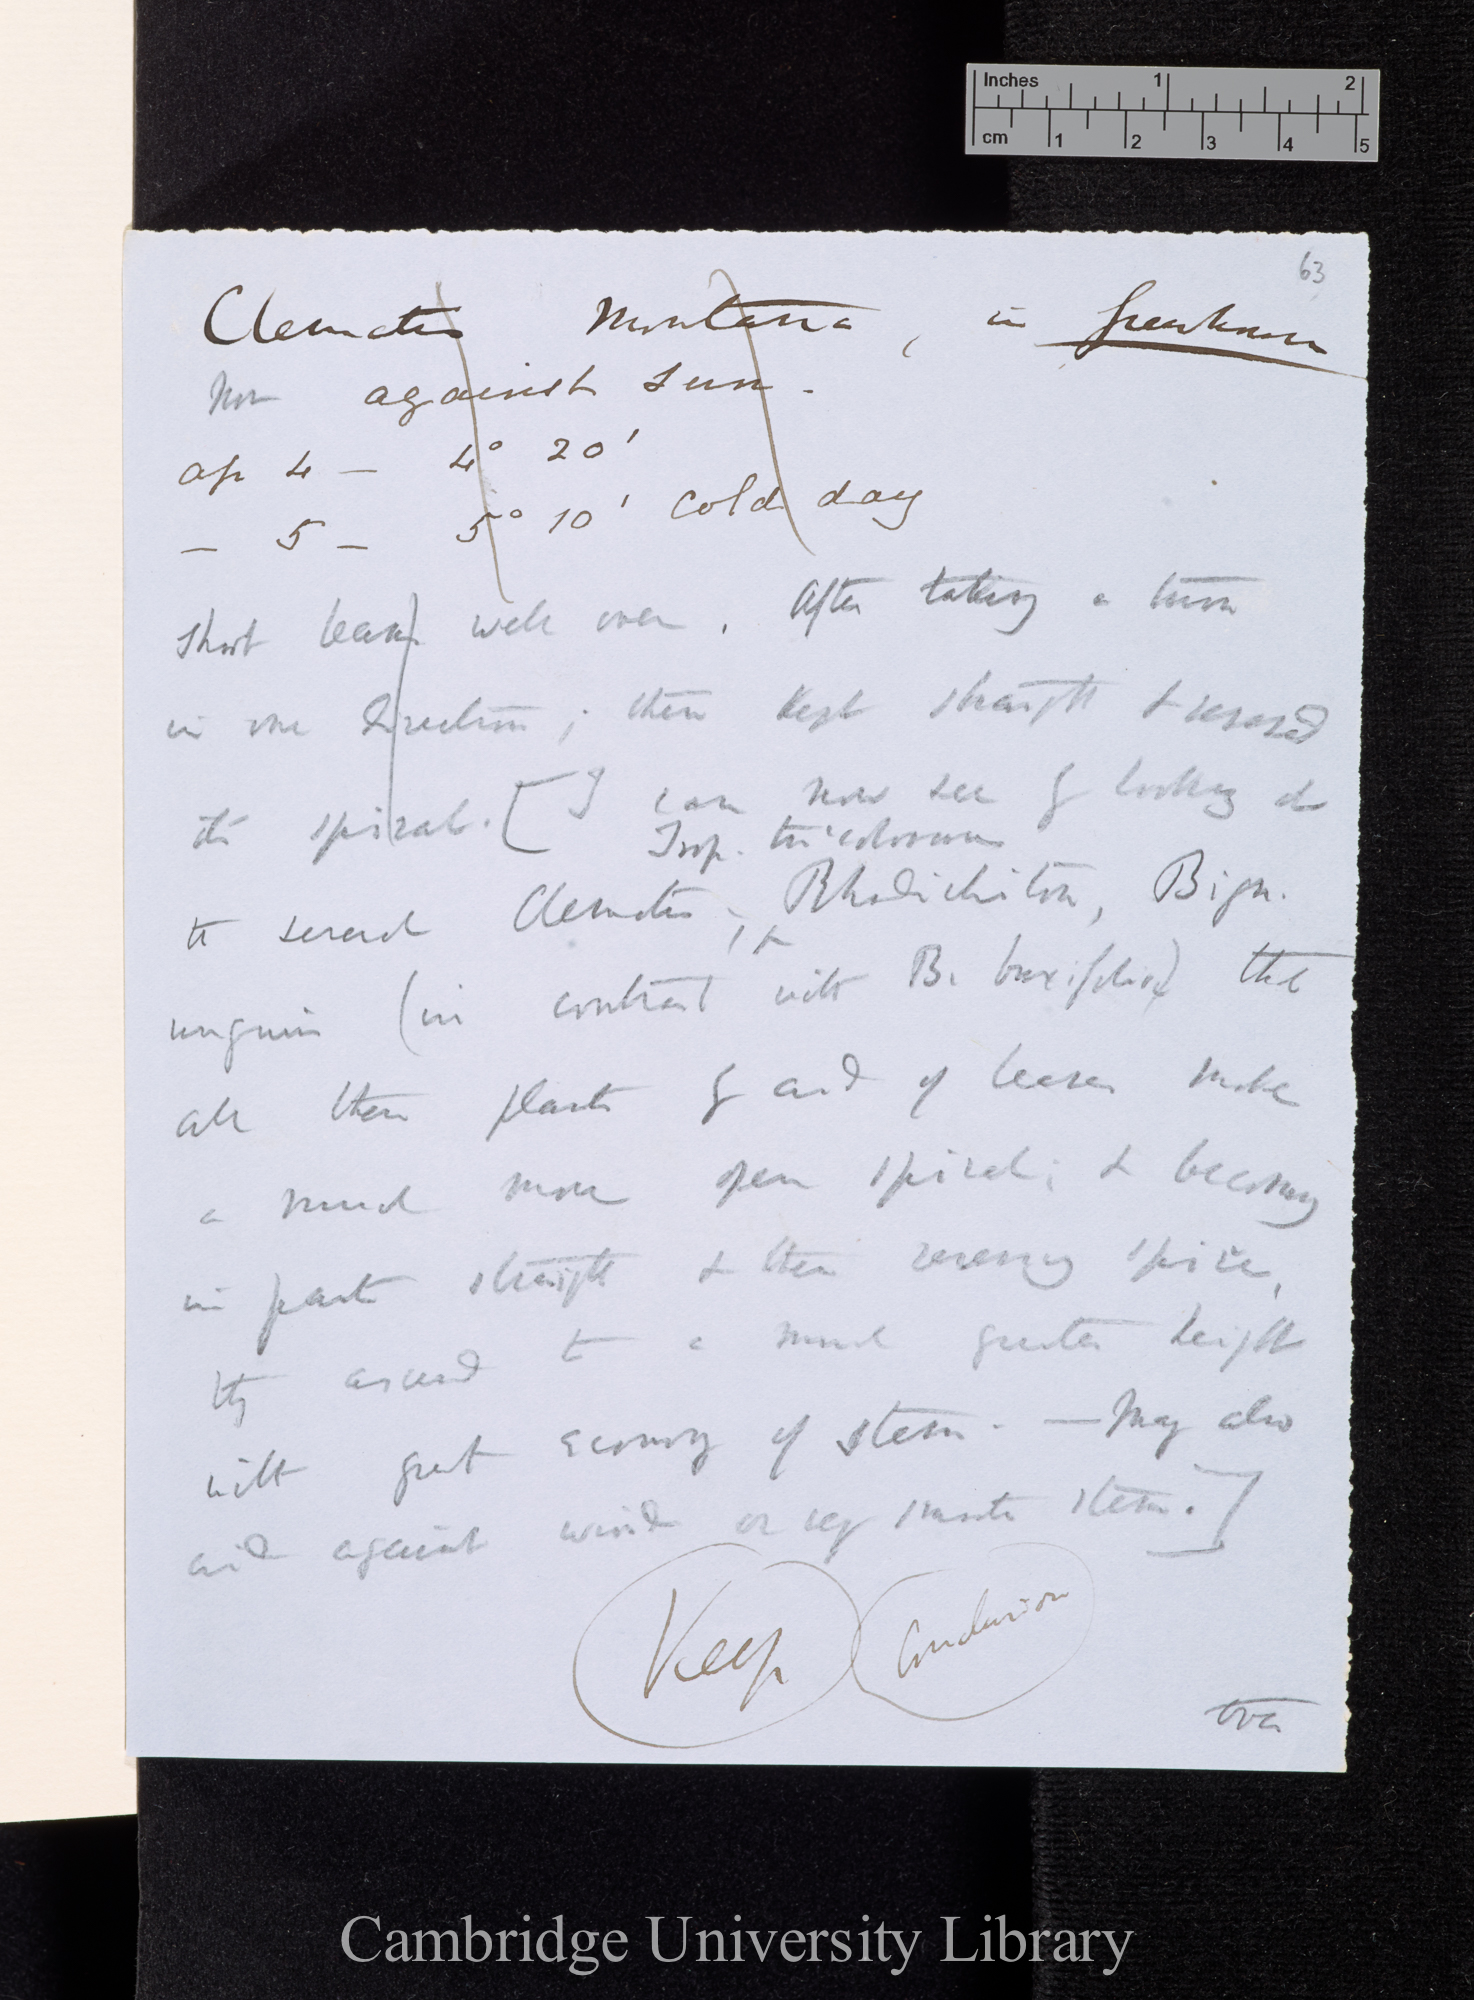 Inches 1 2
cm 1 2 3 4 5
63
Clematis Montana, in Greenhouse
Now against sun.
Ap 4 — 4° 20'
— 5 — 5° 10' cold day
Short leans well over. After taking a turn
in one direction; then kept straight & reversed
its spiral. [I can now see by looking at
Trop. tricolorum
to several Clematis, & Rhodichiton, Bign.
unguis (in contrast with B. buxifolia) that
all these plants by aid of leaves make
a much more open spiral; & becoming
in parts straight & then reversing spire,
they ascend to a much greater height
with great economy of stem. — May also
aid against wind or very smooth stem.]
Keep Conclusion
over
Cambridge University Library